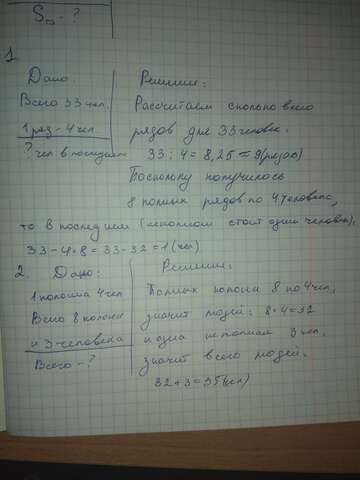 S▭ - ?
1.
Дано: Решение:
Всего 33 чел. Рассчитаем сколько всего
1 ряд - 4 чел рядов для 33 человек.
? чел в последнем 33 : 4 = 8,25 ≈ 9 (рядов)
Поскольку получилось
8 полных рядов по 4 человека,
то в последнем (неполном) стоит один человек.
33 - 4 · 8 = 33 - 32 = 1 (чел)
2. Дано: Решение:
1 колонна 4 чел Полных колонн 8 по 4 чел,
Всего 8 колонн значит людей: 8 · 4 = 32
и 3 человека и одна неполная 3 чел.
Всего - ? значит всего людей:
32 + 3 = 35 (чел)